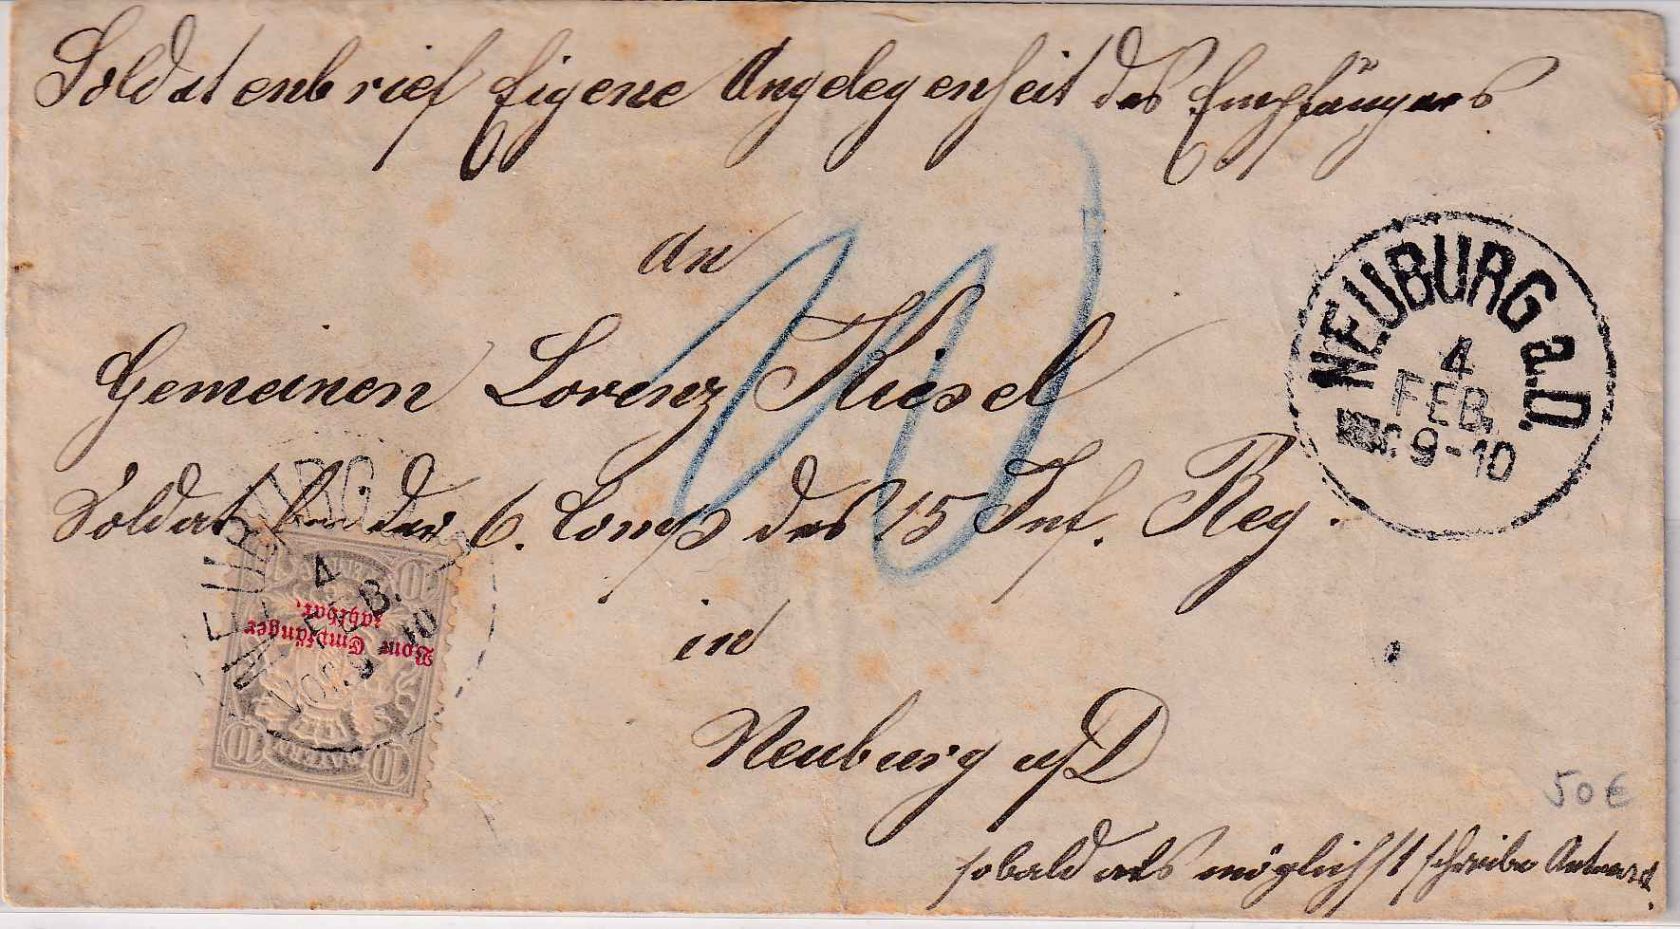 Soldatenbrief Eigene Angelegenheit des Empfängers
An
10
Gemeinen Lorenz Kiesel
Soldat bei der 6. Comp des 15 Inf. Reg.
in
Neuburg a/D
sobald als möglichst schreibe Antword.
NEUBURG a.D.
4
FEB.
9-10
NEUBURG
4
FEB.
VOR. 9-10
Vom Empfänger
zahlbar.
BAYERN
10
10
10
50 €